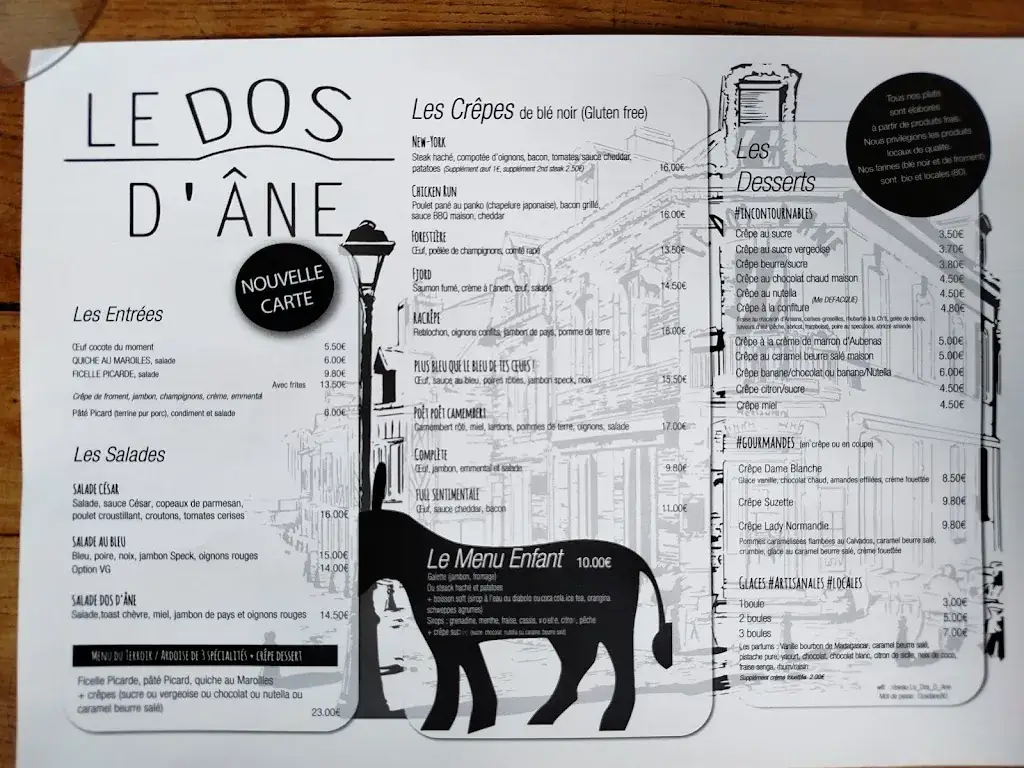 LE DOS
D'ÂNE
NOUVELLE
CARTE
Les Entrées
Œuf cocote du moment 5.50€
QUICHE AU MAROILES, salade 6.00€
FICELLE PICARDE, salade 9.80€
Avec frites 13.50€
Crêpe de froment, jambon, champignons, crème, emmental
Pâté Picard (terrine pur porc), condiment et salade 6.00€
Les Salades
SALADE CÉSAR
Salade, sauce César, copeaux de parmesan,
poulet croustillant, croutons, tomates cerises 16.00€
SALADE AU BLEU
Bleu, poire, noix, jambon Speck, oignons rouges 15.00€
Option VG 14.00€
SALADE DOS D'ÂNE
Salade,toast chèvre, miel, jambon de pays et oignons rouges 14.50€
MENU DU TERROIR / ARDOISE DE 3 SPÉCIALITÉS + CRÊPE DESSERT
Ficelle Picarde, pâté Picard, quiche au Maroilles
+ crêpes (sucre ou vergeoise ou chocolat ou nutella ou
caramel beurre salé) 23.00€
Les Crêpes de blé noir (Gluten free)
NEW-YORK
Steak haché, compotée d'oignons, bacon, tomates, sauce cheddar,
patatoes (Supplément œuf 1€, supplément 2nd steak 2.50€) 16.00€
CHICKEN RUN
Poulet pané au panko (chapelure japonaise), bacon grillé,
sauce BBQ maison, cheddar 16.00€
FORESTIÈRE
Œuf, poêlée de champignons, comté rapé 13.50€
FJORD
Saumon fumé, crème à l'aneth, œuf, salade 14.50€
RACRÊPE
Reblochon, oignons confits, jambon de pays, pomme de terre 16.00€
PLUS BLEU QUE LE BLEU DE TES ŒUFS !
Œuf, sauce au bleu, poires rôties, jambon speck, noix 15.50€
POËT POËT CAMEMBERT
Camembert rôti, miel, lardons, pommes de terre, oignons, salade 17.00€
COMPLÈTE
Œuf, jambon, emmental et salade 9.80€
FULL SENTIMENTALE
Œuf, sauce cheddar, bacon 11.00€
Le Menu Enfant 10.00€
Galette (jambon, fromage)
Ou steack haché et patatoes
+ boisson soft (sirop à l'eau ou diabolo ou coca cola, ice tea, orangina
schweppes agrumes)
Sirops : grenadine, menthe, fraise, cassis, violette, citron, pêche
+ crêpe sucrée (sucre, chocolat, nutella ou caramel beurre salé)
Tous nos plats
sont élaborés
à partir de produits frais.
Nous privilégions les produits
locaux de qualité.
Nos farines (blé noir et de froment)
sont bio et locales (80).
Les
Desserts
#INCONTOURNABLES
Crêpe au sucre 3.50€
Crêpe au sucre vergeoise 3.70€
Crêpe beurre/sucre 3.80€
Crêpe au chocolat chaud maison 4.50€
Crêpe au nutella 4.50€
Crêpe à la confiture (Me DEFACQUE) 4.80€
Fraise au macaron d'Amiens, cerises-groseilles, rhubarbe à la Ch'ti, gelée de mûres,
saveurs d'été (pêche, abricot, framboise), poire au speculoos, abricot-amande
Crêpe à la crème de marron d'Aubenas 5.00€
Crêpe au caramel beurre salé maison 5.00€
Crêpe banane/chocolat ou banane/Nutella 6.00€
Crêpe citron/sucre 4.50€
Crêpe miel 4.50€
#GOURMANDES (en crêpe ou en coupe)
Crêpe Dame Blanche
Glace vanille, chocolat chaud, amandes effilées, crème fouettée 8.50€
Crêpe Suzette 9.80€
Crêpe Lady Normandie 9.80€
Pommes caramélisées flambées au Calvados, caramel beurre salé,
crumble, glace au caramel beurre salé, crème fouettée
GLACES #ARTISANALES #LOCALES
1boule 3.00€
2 boules 5.00€
3 boules 7.00€
Les parfums : Vanille bourbon de Madagascar, caramel beurre salé,
pistache pure, yaourt, chocolat, chocolat blanc, citron de sicile, noix de coco,
fraise senga, rhum/raisin
Supplément crème fouettée 2.00€
wifi : réseau Le_Dos_D_Ane
Mot de passe :